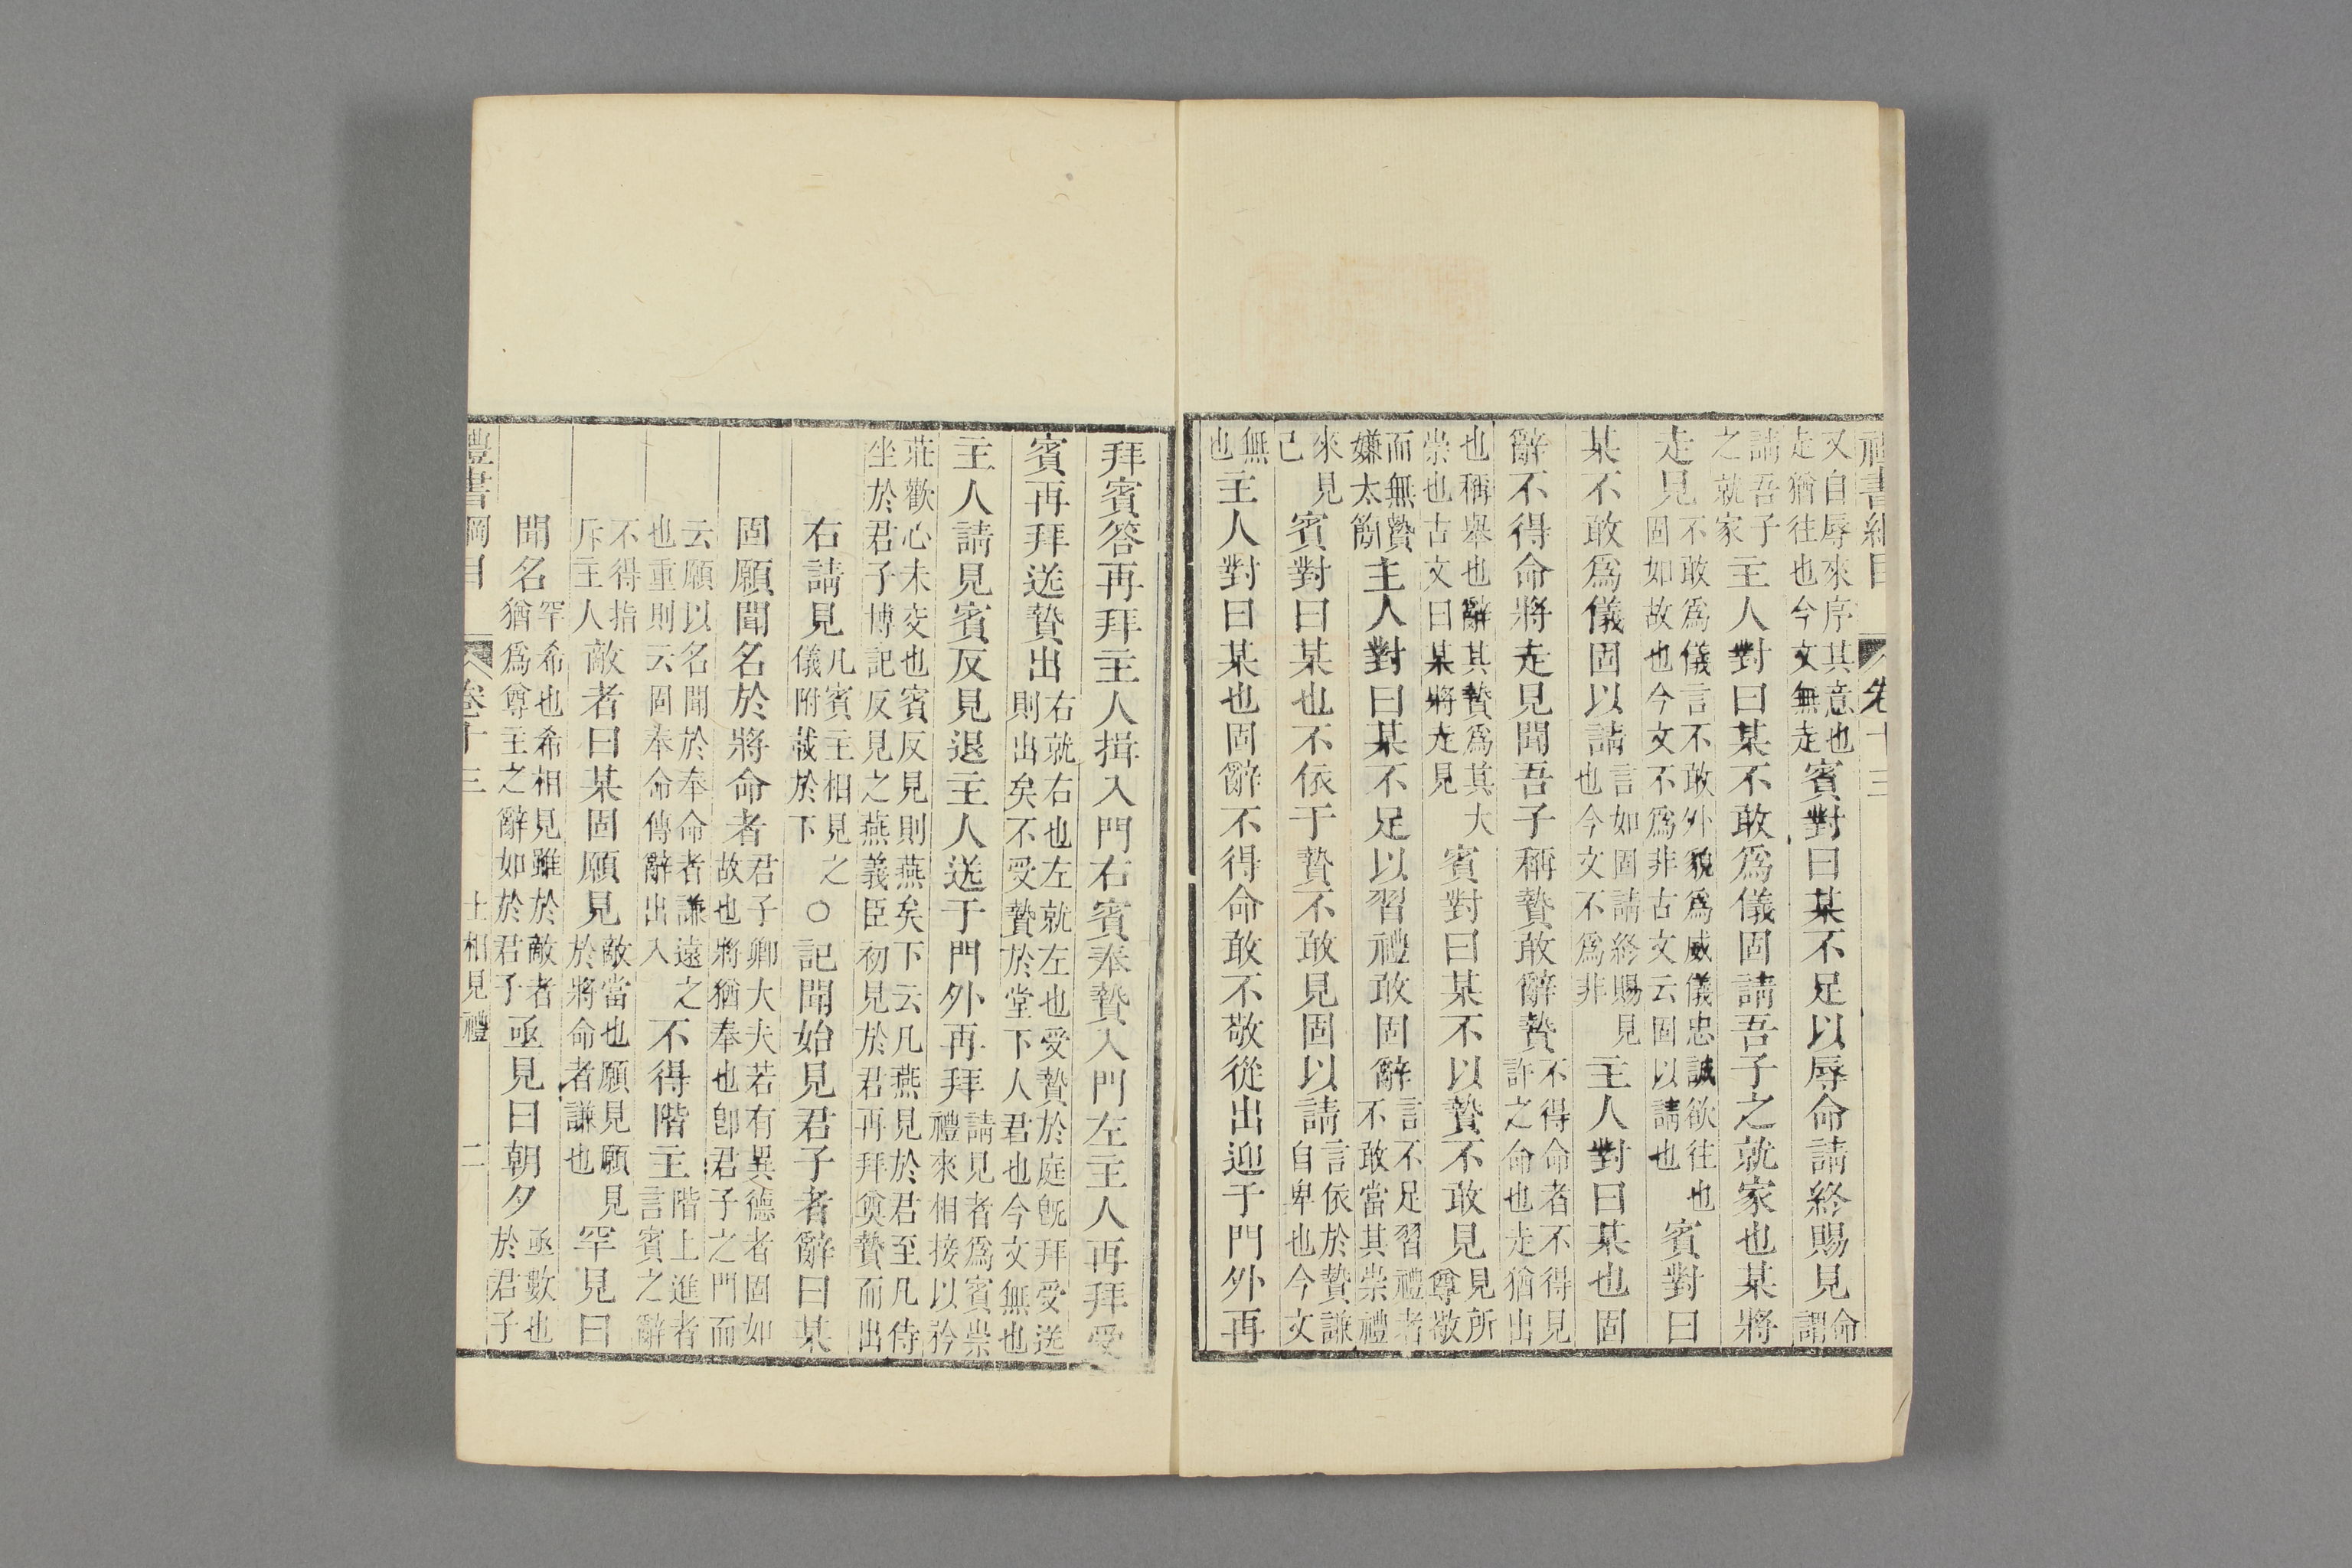 禮書綱目 卷十三
又自辱來序其意也走猶往也今文無走賓對曰某不足以辱命請終賜見命謂
請吾子之就家主人對曰某不敢爲儀固請吾子之就家也某將
走見不敢爲儀言不敢外貌爲威儀忠誠欲往也固如故也今文不爲非古文云固以請也賓對曰
某不敢爲儀固以請言如固請終賜見也今文不爲非主人對曰某也固
辭不得命將走見聞吾子稱贄敢辭贄不得命者不得見許之命也走猶出
也稱舉也辭其贄爲其大崇也古文曰某將走見賓對曰某不以贄不敢見見所尊敬
而無贄嫌太簡主人對曰某不足以習禮敢固辭言不足習禮者不敢當其崇禮
來見己賓對曰某也不依于贄不敢見固以請言依於贄謙自卑也今文
無也主人對曰某也固辭不得命敢不敬從出迎于門外再
拜賓答再拜主人揖入門右賓奉贄入門左主人再拜受
賓再拜送贄出右就右也左就左也受贄於庭旣拜受送則出矣不受贄於堂下人君也今文無也
主人請見賓反見退主人送于門外再拜請見者爲賓崇禮來相接以矜
莊歡心未交也賓反見則燕矣下云凡燕見於君至凡侍坐於君子博記反見之燕義臣初見於君再拜奠贄而出
右請見凡賓主相見之儀附載於下○記聞始見君子者辭曰某
固願聞名於將命者君子卿大夫若有異德者固如故也將猶奉也卽君子之門而
云願以名聞於奉命者謙遠之也重則云固奉命傳辭出入不得階主階上進者言賓之辭
不得指斥主人敵者曰某固願見敵當也願見願見於將命者謙也罕見曰
聞名罕希也希相見雖於敵者猶爲尊主之辭如於君子亟見曰朝夕亟數也於君子
禮書綱目 卷十三 士相見禮 二